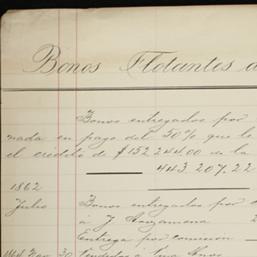 Bonos Flotantes a
Bonos entregados por
nada en pago del 50% que le
el crédito de $152 244.00 en la
443.207.22
1862
Julio Bonos entregados por
á J.
Entrega por comision
Nov. 30 Vendidos á